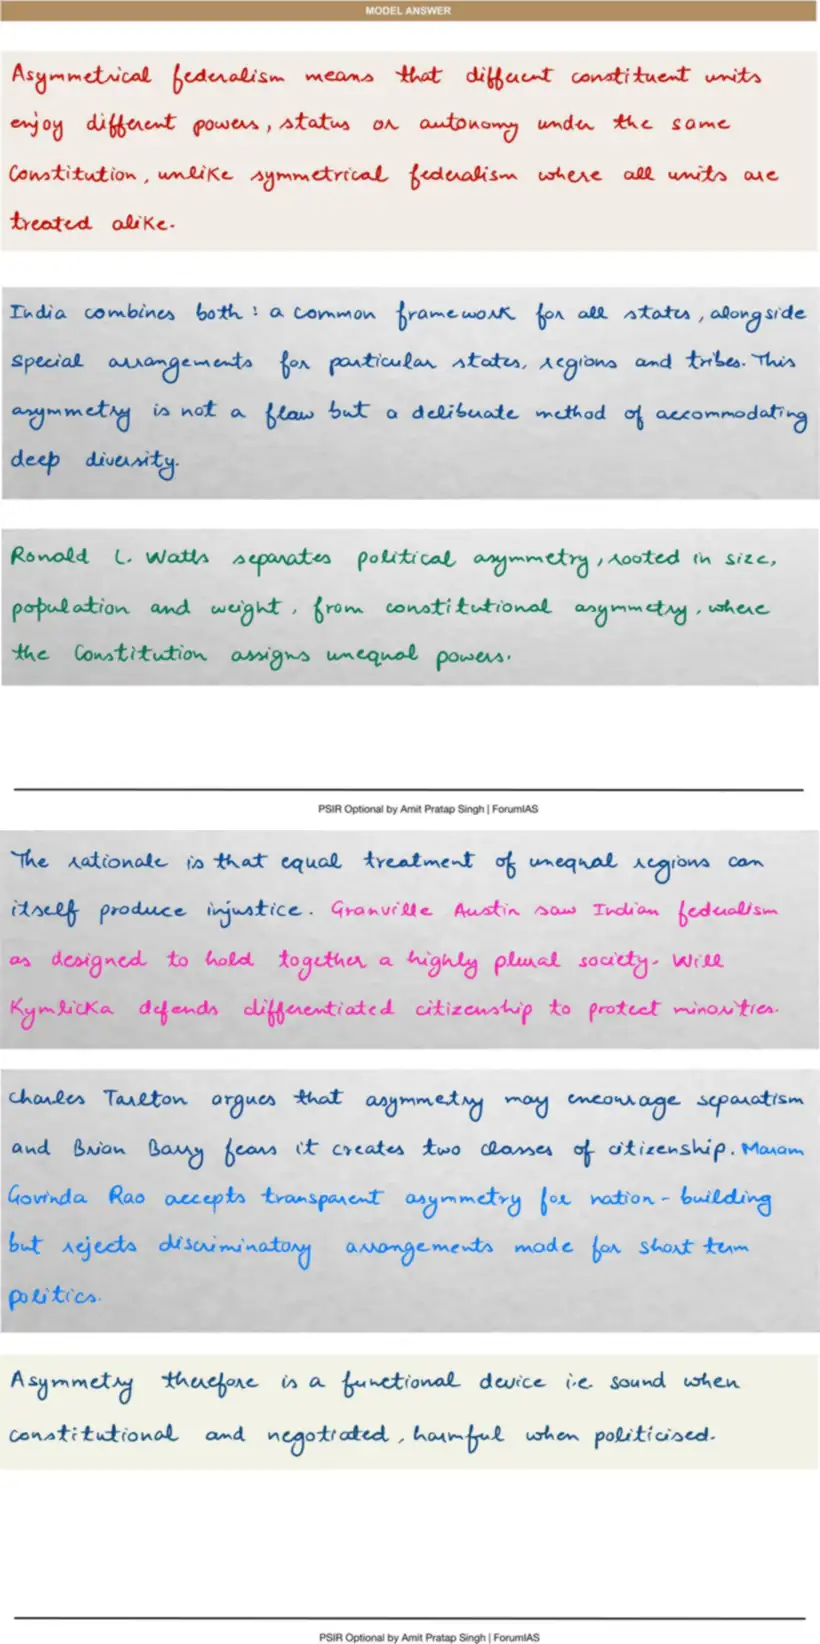 MODEL ANSWER
Asymmetrical federalism means that different constituent units
enjoy different powers, status or autonomy under the same
Constitution, unlike symmetrical federalism where all units are
treated alike.
India combines both: a common framework for all states, alongside
special arrangements for particular states, regions and tribes. This
asymmetry is not a flaw but a deliberate method of accommodating
deep diversity.
Ronald L. Watts separates political asymmetry, rooted in size,
population and weight, from constitutional asymmetry, where
the Constitution assigns unequal powers.
PSIR Optional by Amit Pratap Singh | ForumIAS
The rationale is that equal treatment of unequal regions can
itself produce injustice. Granville Austin saw Indian federalism
as designed to hold together a highly plural society. Will
Kymlicka defends differentiated citizenship to protect minorities.
Charles Tarlton argues that asymmetry may encourage separatism
and Brian Barry fears it creates two classes of citizenship. Maram
Govinda Rao accepts transparent asymmetry for nation-building
but rejects discriminatory arrangements made for short term
politics.
Asymmetry therefore is a functional device i.e. sound when
constitutional and negotiated, harmful when politicised.
PSIR Optional by Amit Pratap Singh | ForumIAS